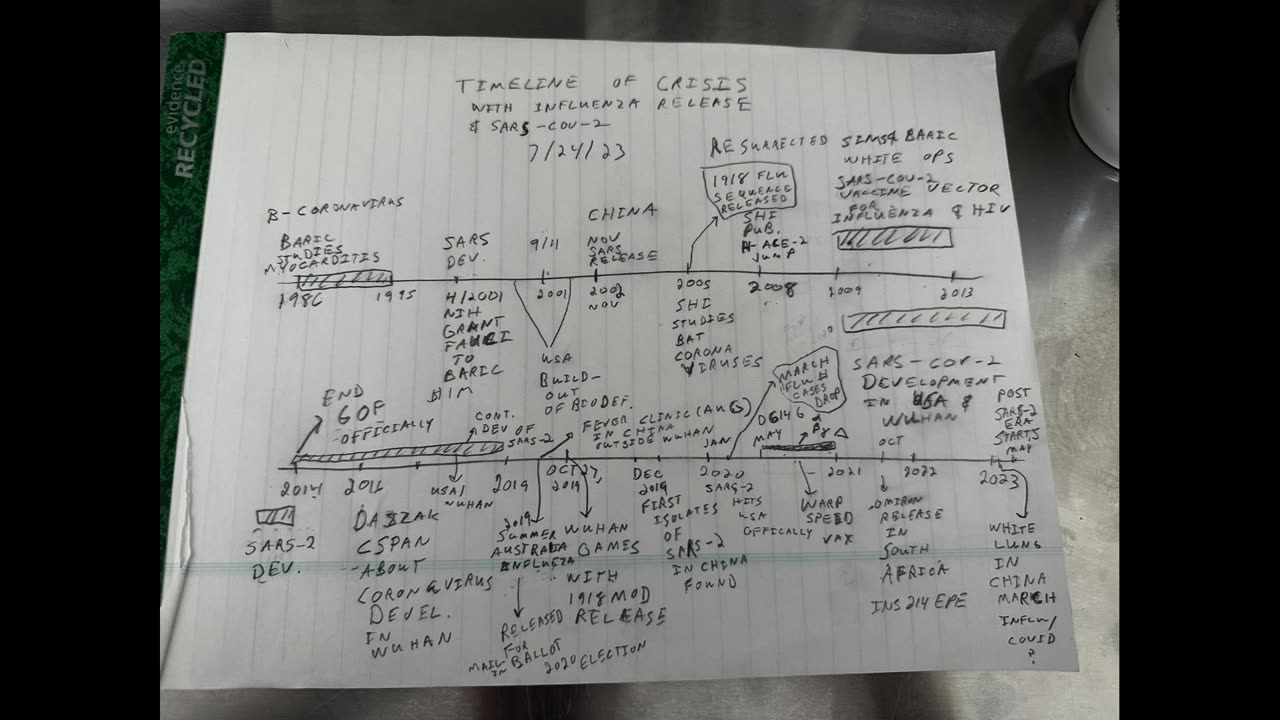 evidence
RECYCLED
TIMELINE OF CRISIS
WITH INFLUENZA RELEASE
& SARS-COV-2
7/24/23
B-CORONAVIRUS
BARIC
STUDIES
MYOCARDITIS
1986
1995
SARS
DEV.
4/2001
NIH
GRANT
FAUCI
TO
BARIC
$1M
9/11
2001
USA
BUILD-
OUT
OF BIODEF.
CHINA
NOV
SARS
RELEASE
2002
NOV
RESURRECTED
1918 FLU
SEQUENCE
RELEASED
2005
SHI
STUDIES
BAT
CORONA
VIRUSES
SHI
PUB.
H-ACE-2
JUMP
2008
SIMS & BARIC
WHITE OPS
SARS-COV-2
VACCINE VECTOR
FOR
INFLUENZA & HIV
2009
2013
SARS-COV-2
DEVELOPMENT
IN USA &
WUHAN
END
GOF
OFFICIALLY
2014
SARS-2
DEV.
2016
DASZAK
CSPAN
ABOUT
CORONAVIRUS
DEVEL.
IN
WUHAN
CONT.
DEV OF
SARS-2
USA/
WUHAN
2019
2019
SUMMER
AUSTRALIA
INFLUENZA
RELEASED
FOR
MAIL IN BALLOT
2020 ELECTION
FEVER CLINIC (AUG)
IN CHINA
OUTSIDE WUHAN
OCT 27,
2019
WUHAN
GAMES
WITH
1918 MOD
RELEASE
DEC
2019
FIRST
ISOLATES
OF
SARS-2
IN CHINA
FOUND
JAN
2020
SARS-2
HITS
USA
OFFICALLY
MARCH
FLU
CASES
DROP
D614G
MAY
α
βγ Δ
WARP
SPEED
VAX
2021
OCT
OMIRON
RELEASE
IN
SOUTH
AFRICA
INS214EPE
2022
POST
SARS-2
ERA
STARTS
MAY
2023
WHITE
LUNG
IN
CHINA
MARCH
INFLU/
COVID
?